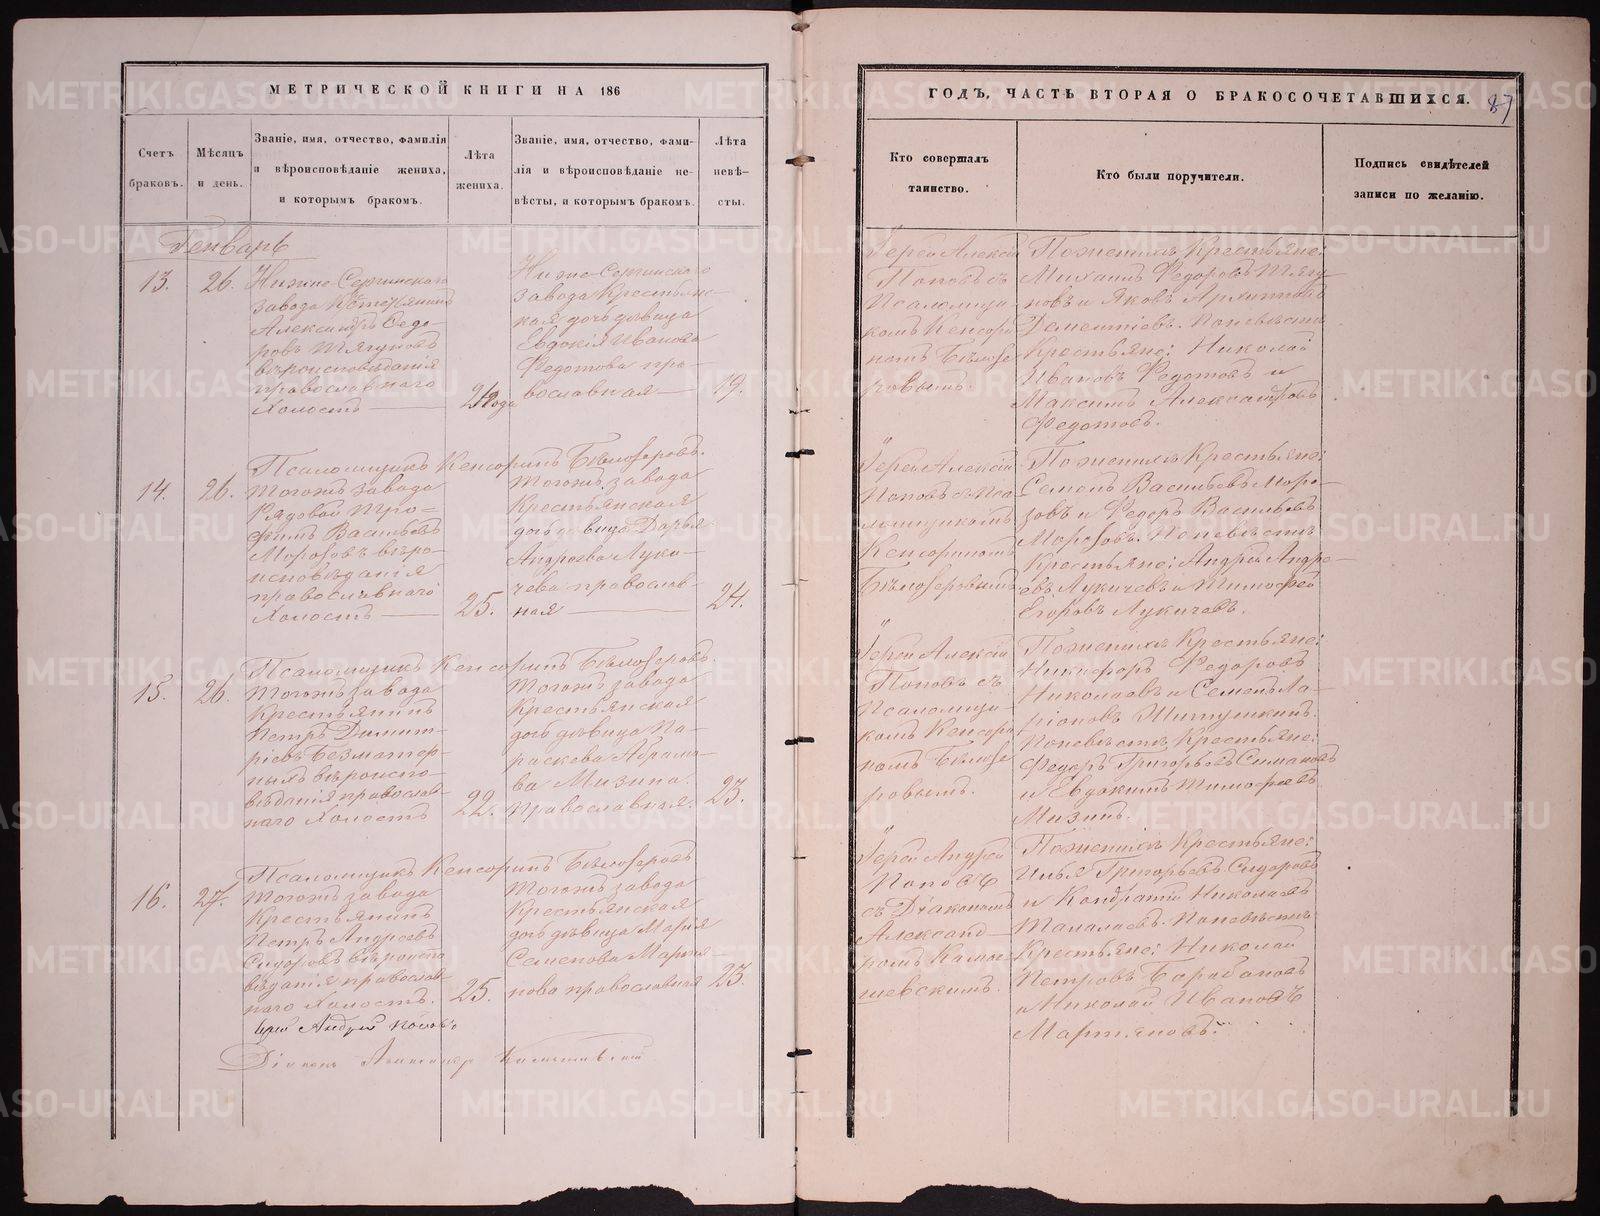 МЕТРИЧЕСКОЙ КНИГИ НА 186
Счетъ браковъ.
Мѣсяцъ и день.
Званіе, имя, отчество, фамилія
и вѣроисповѣданіе жениха,
и которымъ бракомъ.
Лѣта
жениха.
Званіе, имя, отчество, фами-
лія и вѣроисповѣданіе не-
вѣсты, и которымъ бракомъ.
Лѣта
невѣ-
сты.
Генварь
13.
26.
Нижне-Сергинскаго
завода Крестьянинъ
Александръ Ѳедо-
ровъ Тягуновъ
вѣроисповѣданія
православнаго
Холостъ
24 года
Нижне-Сергинскаго
завода Крестьянс-
кая дочь дѣвица
Евдокія Иванова
Ѳедотова пра-
вославная
19.
Псаломщикъ Кенсоринъ Бѣлозеровъ.
14.
26.
Тогожъ завода
Рядовой Тро-
фимъ Васильевъ
Морозовъ вѣро-
исповѣданія
православнаго
Холостъ
25.
Тогожъ завода
Крестьянская
дочь дѣвица Дарья
Андреева Луки-
чева православ-
ная
24.
Псаломщикъ Кенсоринъ Бѣлозеровъ.
15.
26.
Тогожъ завода
Крестьянинъ
Петръ Димит-
ріевъ Безматер-
ныхъ вѣроиспо-
вѣданія православ-
наго Холостъ
22.
Тогожъ завода
Крестьянская
дочь дѣвица Па-
раскева Абрамо-
ва Мизина.
Православная.
23.
Псаломщикъ Кенсоринъ Бѣлозеровъ
16.
27.
Тогожъ завода
Крестьянинъ
Петръ Андреевъ
Сидоровъ вѣроиспо-
вѣданія православ-
наго Холостъ.
25.
Тогожъ завода
Крестьянская
дочь дѣвица Марія
Семенова Мартья-
нова православная
23.
Іерей Андрей Поповъ
Діаконъ Александръ
ГОДЪ, ЧАСТЬ ВТОРАЯ О БРАКОСОЧЕТАВШИХСЯ.
87
Кто совершалъ
таинство.
Кто были поручители.
Подпись свидѣтелей
записи по желанію.
Іерей Алексій
Поповъ съ
Псаломщи-
комъ Кенсори-
номъ Бѣлозе-
ровымъ.
По женихѣ Крестьяне:
Михаилъ Ѳедоровъ Тягу-
новъ и Яковъ Архиповъ
Дементіевъ. По невѣстѣ
Крестьяне: Николай
Ивановъ Ѳедотовъ и
Максимъ Александровъ
Ѳедотовъ.
Іерей Алексій
Поповъ съ Пса-
ломщикомъ
Кенсориномъ
Бѣлозеровымъ
По женихѣ Крестьяне:
Семенъ Васильевъ Моро-
зовъ и Ѳедоръ Васильевъ
Морозовъ. По невѣстѣ
Крестьяне: Андрей Андре-
евъ Лукичевъ и Тимофей
Егоровъ Лукичевъ.
Іерей Алексій
Поповъ съ
Псаломщи-
комъ Кенсори-
номъ Бѣлозе-
ровымъ.
По женихѣ Крестьяне:
Никифоръ Ѳедоровъ
Николаевъ и Семенъ Ла-
ріоновъ Шитушкинъ.
По невѣстѣ Крестьяне:
Ѳедоръ Григорьевъ Симановъ
и Евдокимъ Тимофеевъ
Мизинъ.
Іерей Андрей
Поповъ
съ Діакономъ
Александ-
ромъ
По женихѣ Крестьяне:
Илья Григорьевъ Сидоровъ
и Кондратій Николаевъ
По невѣстѣ
Крестьяне: Николай
Петровъ Барабановъ
и Николай Ивановъ
Мартьяновъ.
METRIKI.GASO-URAL.RU